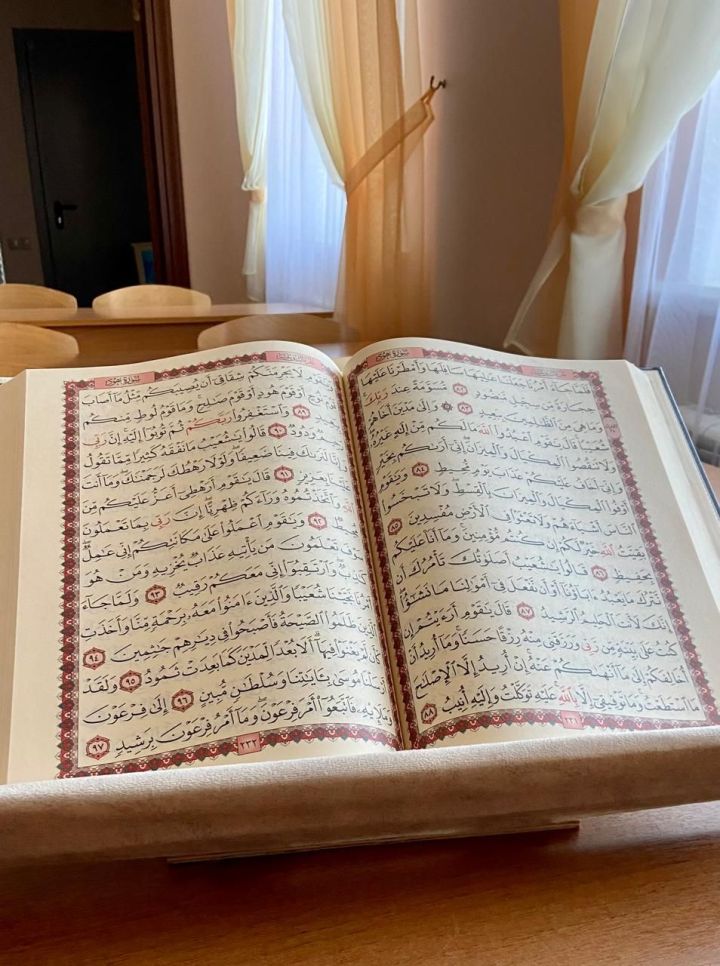 سُورَةُ هُودٍ
فَلَمَّا جَآءَ أَمْرُنَا جَعَلْنَا عَٰلِيَهَا سَافِلَهَا وَأَمْطَرْنَا عَلَيْهَا
حِجَارَةً مِّن سِجِّيلٍ مَّنضُودٍ ٨٢ مُّسَوَّمَةً عِندَ رَبِّكَ
وَمَا هِيَ مِنَ ٱلظَّٰلِمِينَ بِبَعِيدٍ ٨٣ ۞ وَإِلَىٰ مَدْيَنَ أَخَاهُمْ
شُعَيْبًا قَالَ يَٰقَوْمِ ٱعْبُدُوا۟ ٱللَّهَ مَا لَكُم مِّنْ إِلَٰهٍ غَيْرُهُۥ
وَلَا تَنقُصُوا۟ ٱلْمِكْيَالَ وَٱلْمِيزَانَ إِنِّىٓ أَرَىٰكُم بِخَيْرٍ
وَإِنِّىٓ أَخَافُ عَلَيْكُمْ عَذَابَ يَوْمٍ مُّحِيطٍ ٨٤ وَيَٰقَوْمِ
أَوْفُوا۟ ٱلْمِكْيَالَ وَٱلْمِيزَانَ بِٱلْقِسْطِ وَلَا تَبْخَسُوا۟
ٱلنَّاسَ أَشْيَآءَهُمْ وَلَا تَعْثَوْا۟ فِى ٱلْأَرْضِ مُفْسِدِينَ ٨٥
بَقِيَّتُ ٱللَّهِ خَيْرٌ لَّكُمْ إِن كُنتُم مُّؤْمِنِينَ وَمَآ أَنَا۠ عَلَيْكُم
بِحَفِيظٍ ٨٦ قَالُوا۟ يَٰشُعَيْبُ أَصَلَوٰتُكَ تَأْمُرُكَ أَن
نَّتْرُكَ مَا يَعْبُدُ ءَابَآؤُنَآ أَوْ أَن نَّفْعَلَ فِىٓ أَمْوَٰلِنَا مَا نَشَٰٓؤُا۟
إِنَّكَ لَأَنتَ ٱلْحَلِيمُ ٱلرَّشِيدُ ٨٧ قَالَ يَٰقَوْمِ أَرَءَيْتُمْ إِن
كُنتُ عَلَىٰ بَيِّنَةٍ مِّن رَّبِّى وَرَزَقَنِى مِنْهُ رِزْقًا حَسَنًا وَمَآ أُرِيدُ أَنْ
أُخَالِفَكُمْ إِلَىٰ مَآ أَنْهَىٰكُمْ عَنْهُ إِنْ أُرِيدُ إِلَّا ٱلْإِصْلَٰحَ
مَا ٱسْتَطَعْتُ وَمَا تَوْفِيقِىٓ إِلَّا بِٱللَّهِ عَلَيْهِ تَوَكَّلْتُ وَإِلَيْهِ أُنِيبُ ٨٨
٢٣١
سُورَةُ هُودٍ
وَيَٰقَوْمِ لَا يَجْرِمَنَّكُمْ شِقَاقِىٓ أَن يُصِيبَكُم مِّثْلُ مَآ أَصَابَ
قَوْمَ نُوحٍ أَوْ قَوْمَ هُودٍ أَوْ قَوْمَ صَٰلِحٍ وَمَا قَوْمُ لُوطٍ مِّنكُم
بِبَعِيدٍ ٨٩ وَٱسْتَغْفِرُوا۟ رَبَّكُمْ ثُمَّ تُوبُوٓا۟ إِلَيْهِ إِنَّ رَبِّى
رَحِيمٌ وَدُودٌ ٩٠ قَالُوا۟ يَٰشُعَيْبُ مَا نَفْقَهُ كَثِيرًا مِّمَّا تَقُولُ
وَإِنَّا لَنَرَىٰكَ فِينَا ضَعِيفًا وَلَوْلَا رَهْطُكَ لَرَجَمْنَٰكَ وَمَآ أَنتَ
عَلَيْنَا بِعَزِيزٍ ٩١ قَالَ يَٰقَوْمِ أَرَهْطِىٓ أَعَزُّ عَلَيْكُم مِّنَ
ٱللَّهِ وَٱتَّخَذْتُمُوهُ وَرَآءَكُمْ ظِهْرِيًّا إِنَّ رَبِّى بِمَا تَعْمَلُونَ
مُحِيطٌ ٩٢ وَيَٰقَوْمِ ٱعْمَلُوا۟ عَلَىٰ مَكَانَتِكُمْ إِنِّى عَٰمِلٌ
سَوْفَ تَعْلَمُونَ مَن يَأْتِيهِ عَذَابٌ يُخْزِيهِ وَمَنْ هُوَ
كَٰذِبٌ وَٱرْتَقِبُوٓا۟ إِنِّى مَعَكُمْ رَقِيبٌ ٩٣ وَلَمَّا جَآءَ
أَمْرُنَا نَجَّيْنَا شُعَيْبًا وَٱلَّذِينَ ءَامَنُوا۟ مَعَهُۥ بِرَحْمَةٍ مِّنَّا وَأَخَذَتِ
ٱلَّذِينَ ظَلَمُوا۟ ٱلصَّيْحَةُ فَأَصْبَحُوا۟ فِى دِيَٰرِهِمْ جَٰثِمِينَ ٩٤
كَأَن لَّمْ يَغْنَوْا۟ فِيهَآ أَلَا بُعْدًا لِّمَدْيَنَ كَمَا بَعِدَتْ ثَمُودُ ٩٥ وَلَقَدْ
أَرْسَلْنَا مُوسَىٰ بِـَٔايَٰتِنَا وَسُلْطَٰنٍ مُّبِينٍ ٩٦ إِلَىٰ فِرْعَوْنَ
وَمَلَإِي۟هِۦ فَٱتَّبَعُوٓا۟ أَمْرَ فِرْعَوْنَ وَمَآ أَمْرُ فِرْعَوْنَ بِرَشِيدٍ ٩٧
٢٣٢